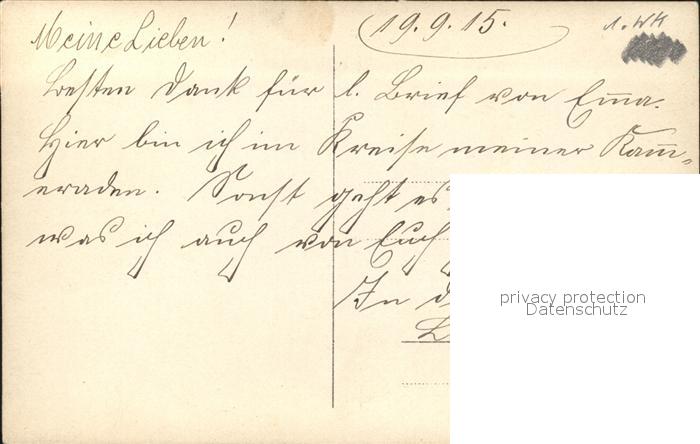 Meine Lieben! 19.9.15. 1. WK
Besten Dank für l. Brief von Em̅a.
Hier bin ich im Kreise meiner Kam̅-
eraden. Sonst geht es
was ich auch von Euch
In d
privacy protection
Datenschutz